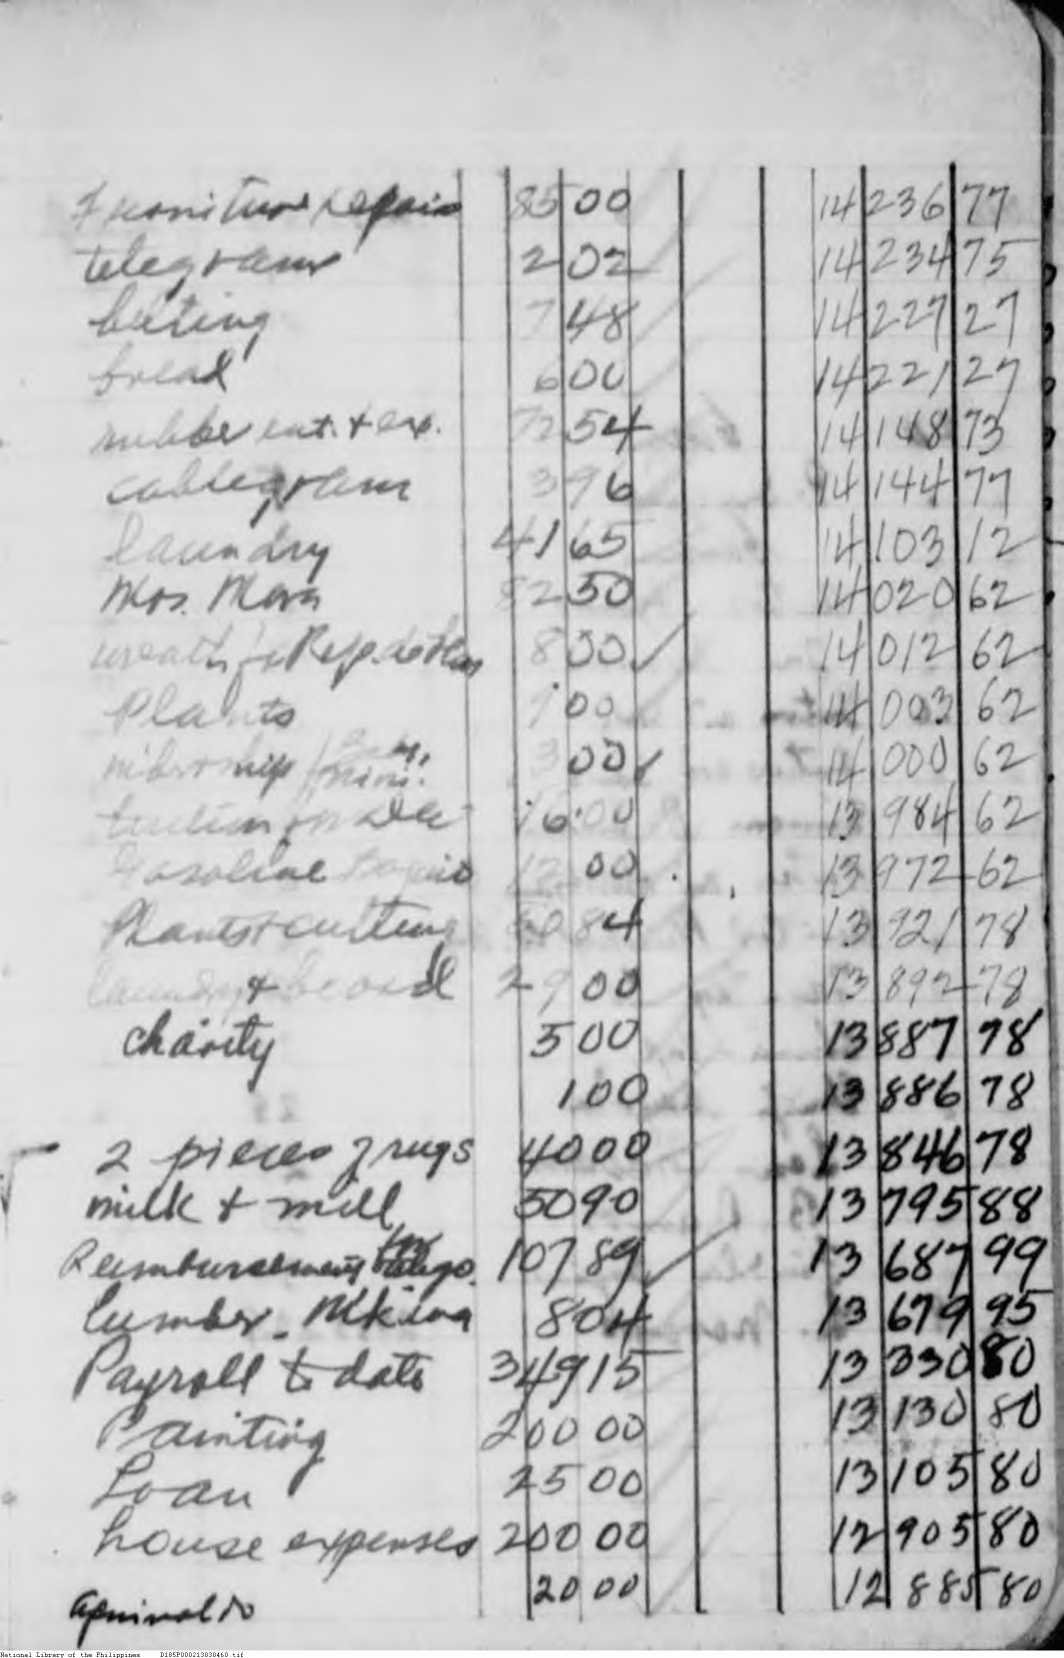 Furniture repair 85 00 14 236 77
telegrams 2 02 14 234 75
belting 7 48 14 227 27
bread 6 00 14 221 27
rubber ext. + ex. 72 54 14 148 73
cablegram 3 96 14 144 77
laundry 41 65 14 103 12
Mrs. Mora 82 50 14 020 62
wreath for Rep. 8 00 14 012 62
Plants 9 00 14 003 62
3 00 14 000 62
tuition 16.00 13 984 62
Gasoline Baguio 12 00 13 972 62
Plants + cutting 50 84 13 921 78
laundry + board 29 00 13 892 78
charity 5 00 13 887 78
1 00 13 886 78
2 pieces of rugs 40 00 13 846 78
milk + mill 50 90 13 795 88
Reimbursement 107 89 13 687 99
lumber - Mkina 8 04 13 679 95
Payroll to date 349 15 13 330 80
Painting 200 00 13 130 80
Loan 25 00 13 105 80
house expenses 200 00 12 905 80
Aguinaldo 20 00 12 885 80
National Library of the Philippines D185P000213030460.tif